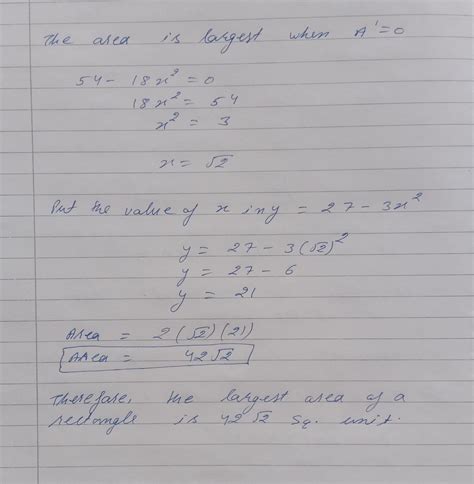 The area is largest when A'=0
54 - 18x² = 0
18x² = 54
x² = 3
x = √2
Put the value of x in y = 27 - 3x²
y = 27 - 3(√2)²
y = 27 - 6
y = 21
Area = 2(√2)(21)
Area = 42√2
Therefore, the largest area of a
rectangle is 42√2 sq. unit.